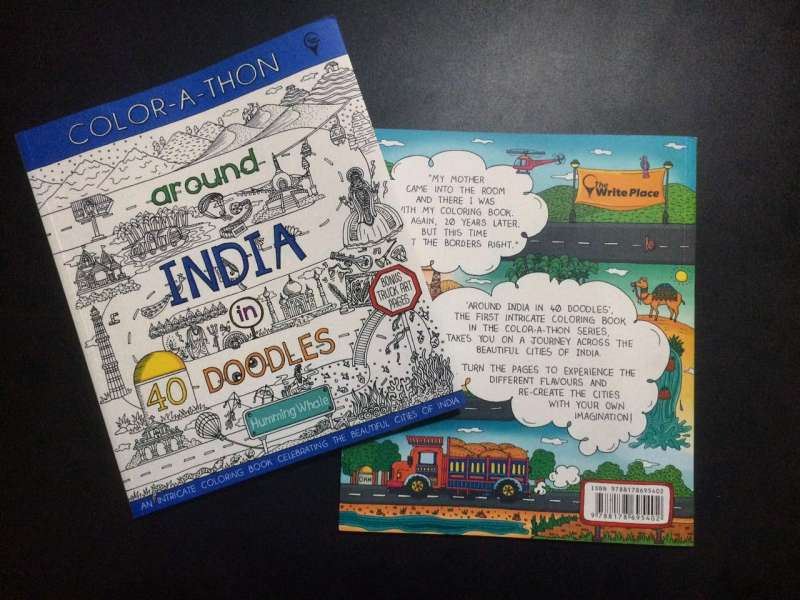 COLOR-A-THON
around
INDIA
in
40 DOODLES
BONUS
TRUCK ART
PAGES
Humming Whale
AN INTRICATE COLORING BOOK CELEBRATING THE BEAUTIFUL CITIES OF INDIA
"MY MOTHER
CAME INTO THE ROOM
AND THERE I WAS
WITH MY COLORING BOOK.
AGAIN, 20 YEARS LATER.
BUT THIS TIME
THE BORDERS RIGHT."
The
Write Place
'AROUND INDIA IN 40 DOODLES',
THE FIRST INTRICATE COLORING BOOK
IN THE COLOR-A-THON SERIES,
TAKES YOU ON A JOURNEY ACROSS THE
BEAUTIFUL CITIES OF INDIA.
TURN THE PAGES TO EXPERIENCE THE
DIFFERENT FLAVOURS AND
RE-CREATE THE CITIES
WITH YOUR OWN
IMAGINATION!
ISBN 9788178695402
9 788178 695402